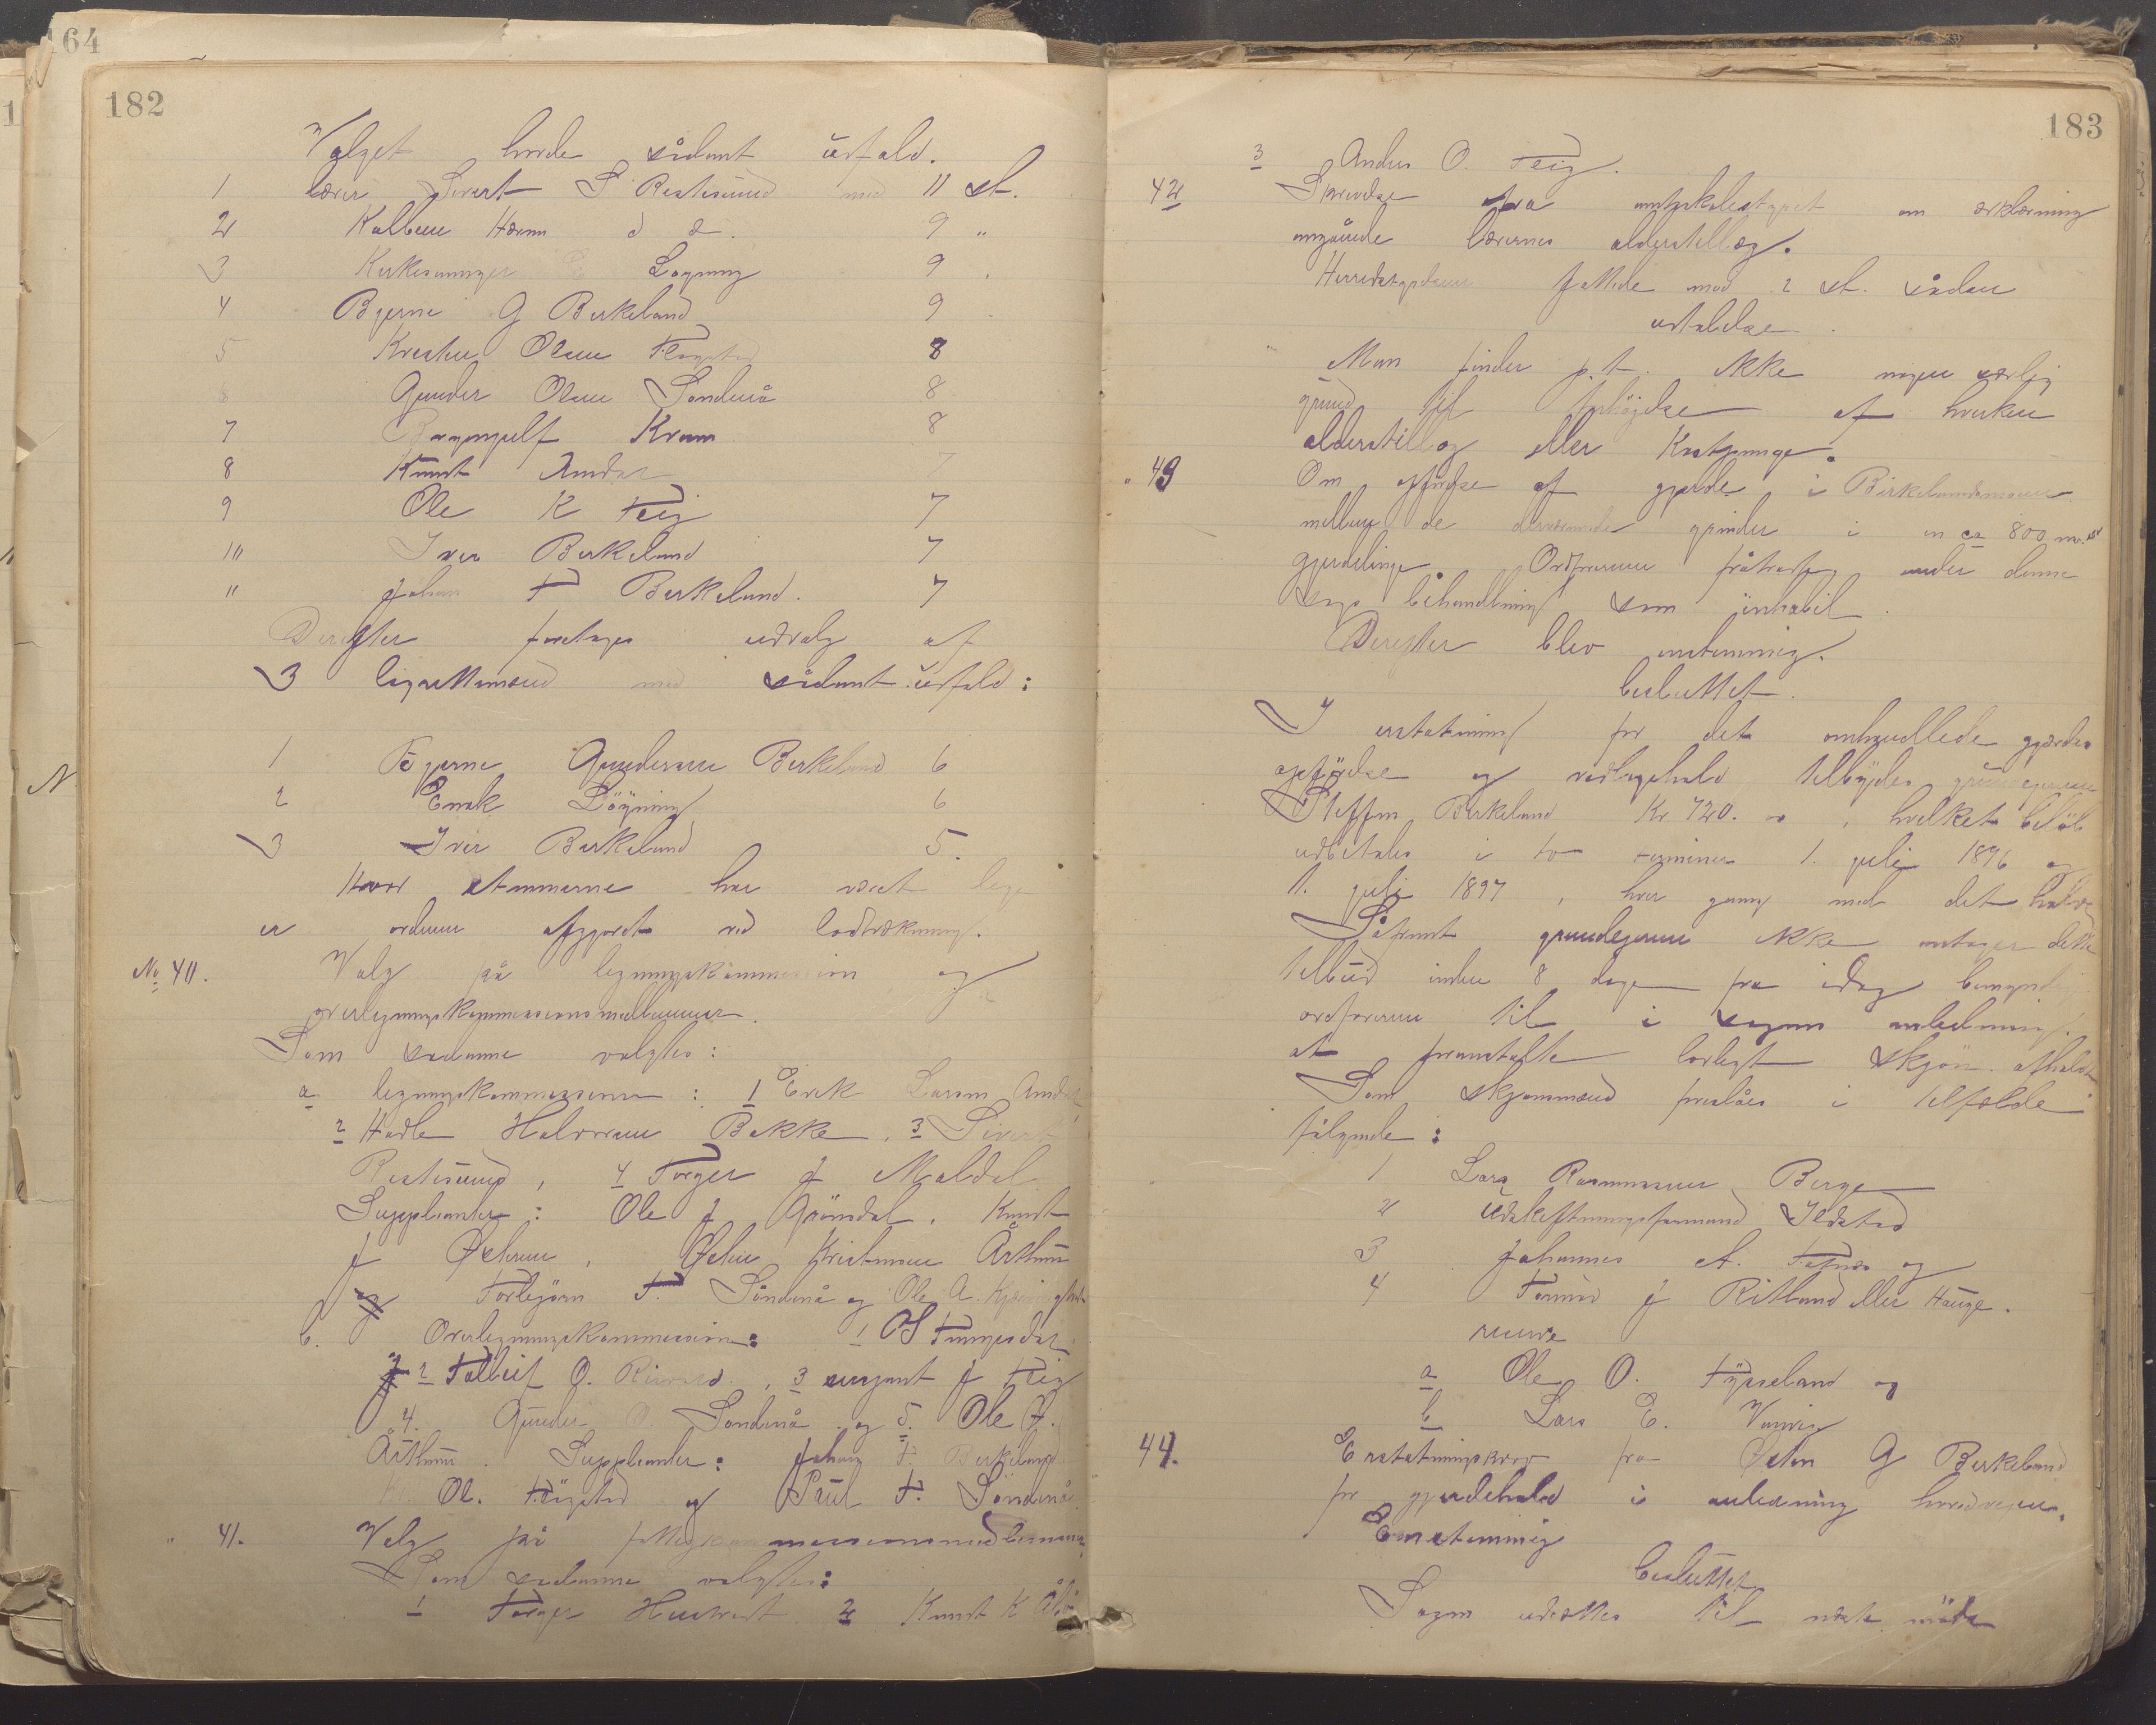 164
182
Valget havde sådant udfald.
1 lærer Sivert S Restesund med 11 st.
2 Kolben Hærem d æ. 9 "
3 Kirkesanger E Løgning 9
4 Bjerne G Birkeland 9
5 Kristen Olsen 8
Gunder Olsen Sondenå 8
7 Kvam 8
8 Knut Amdal 7
9 Ole K Feig 7
10 Iver Birkeland 7
11 Johan T Birkeland. 7
Derefter foretages udvalg af
3 med sådant udfald:
1 Bjerne Gundersen Birkeland 6
2 Enok Löyning 6
3 Iver Birkeland 5.
Hvor stemmerne har været lige
er ordenen afgjordt ved lodtrækning.
No 40. Valg på ligningskommission og
overligningskommissionsmedlemmer.
Som sådanne valgtes:
a ligningskommissionen: 1 Erik Larsen Amdal,
2 Hadle Halvorsen Bakke, 3 Sivert
Restesund, 4 Torger J Maldal
Supplianter: Ole J Gröndal, Knut
J Østerem, Østen Kristensen Århun
og Torbjørn T. Söndenå og Ole A.
b. Overligningskommission: 1 OS Tungesdal
2 Tolleif O. , 3 sergent J Feig
4. Gunder O. Sondenå og 5. Ole Ø.
Århun. Supplianter: Johan T. Birkeland
Ol. og Paul T. Söndenå
" 41. Valg på fattigkommissionsmedlemmer.
Som sådanne valgtes:
1 Torger Hustveit 2 Knut K Åbø
183
3 Anders O. Feig.
42 Skrivelse fra amtsskolestyret om erklæring
angående lærernes alderstillæg.
Herredsstyrelsen fattede mod 2 st. sådan
udtalelse.
"Man finder p.t. ikke nogen særlig
grund til forhöjelse af hverken
alderstillæg eller Kostpenge.
" 43 Om opførelse af gjærde i Birkelandsmoen
mellem de derværende grinder i en ca 800 m.
gjerdelinje. Ordføreren fråtrådte under denne
sags behandling som inhabil.
Derefter blev enstemmig
besluttet.
I erstatning for det omhandlede gjærdes
opförelse og vedligehold tilbydes grundejeren
Steffen Birkeland Kr 720. 00, hvilket belöb
udbetales i to terminer 1. juli 1896 og
1. juli 1897, hver gang med det halve
Såfremt grundejeren ikke antager dette
tilbud inden 8 dage fra idag bemyndiges
ordføreren til i sagens anledning
at foranstalte lovligt skjön afholdt
Som skjønsmænd foreslåes i tilfælde
følgende:
1 Lars Rasmussen Berge
2 Udskiftningsformand Ilstad
3 Johannes A. og
4 Tormod J Ritland eller Hauge.
a Ole O. og
b Lars E.
44. Erstatningskrav fra Østen G Birkeland
for gjerdehold i anledning hovedveien.
Enstemmig
besluttet
Sagen udsættes til næste møde